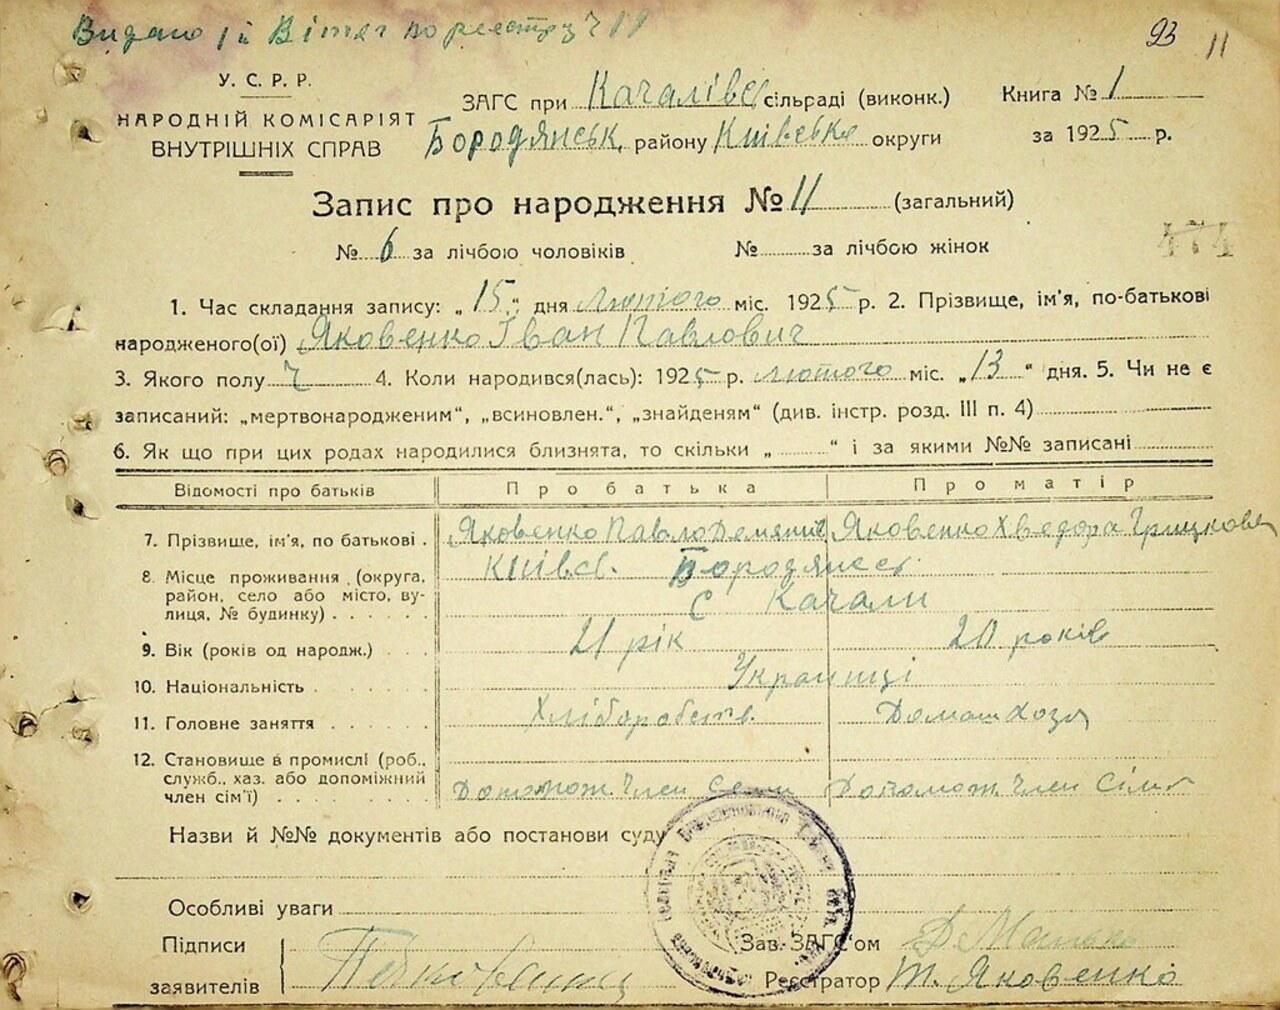 Видано 1й Витяг по реєстру Ч 11
93 11
У. С. Р. Р.
НАРОДНІЙ КОМІСАРІЯТ
ВНУТРІШНІХ СПРАВ
ЗАГС при Качалівс сільраді (виконк.)
Бородянськ. району Київська округи
Книга № 1
за 1925 р.
Запис про народження № 11 (загальний)
№ 6 за лічбою чоловіків № за лічбою жінок
474
1. Час складання запису: „ 15 “ дня лютого міс. 1925 р. 2. Прізвище, ім’я, по-батькові
народженого(ої) Яковенко Іван Павлович
3. Якого полу Ч 4. Коли народився(лась): 1925 р. лютого міс. „ 13 “ дня. 5. Чи не є
записаний: „мертвонародженим“, „всиновлен.“, „знайденям“ (див. інстр. розд. III п. 4)
6. Як що при цих родах народилися близнята, то скільки „ “ і за якими №№ записані
Відомості про батьків Про батька Про матір
7. Прізвище, ім’я, по батькові . Яковенко Павло Демянов Яковенко Хведора Грицкова
8. Місце проживання (округа, Київс. Бородянсь
район, село або місто, ву- С Качали
лиця, № будинку)
9. Вік (років од народж.) 21 рік 20 років
10. Національність Українці
11. Головне заняття Хліборобств. Домаш хозя
12. Становище в промислі (роб.,
служб., хаз. або допоміжний
член сім’ї) Допомож. Член Семи Допомож. Член Сімї
Назви й №№ документів або постанови суду
Особливі уваги
Підписи Зав. ЗАГС’ом
заявителів Реєстратор Т. Яковенко